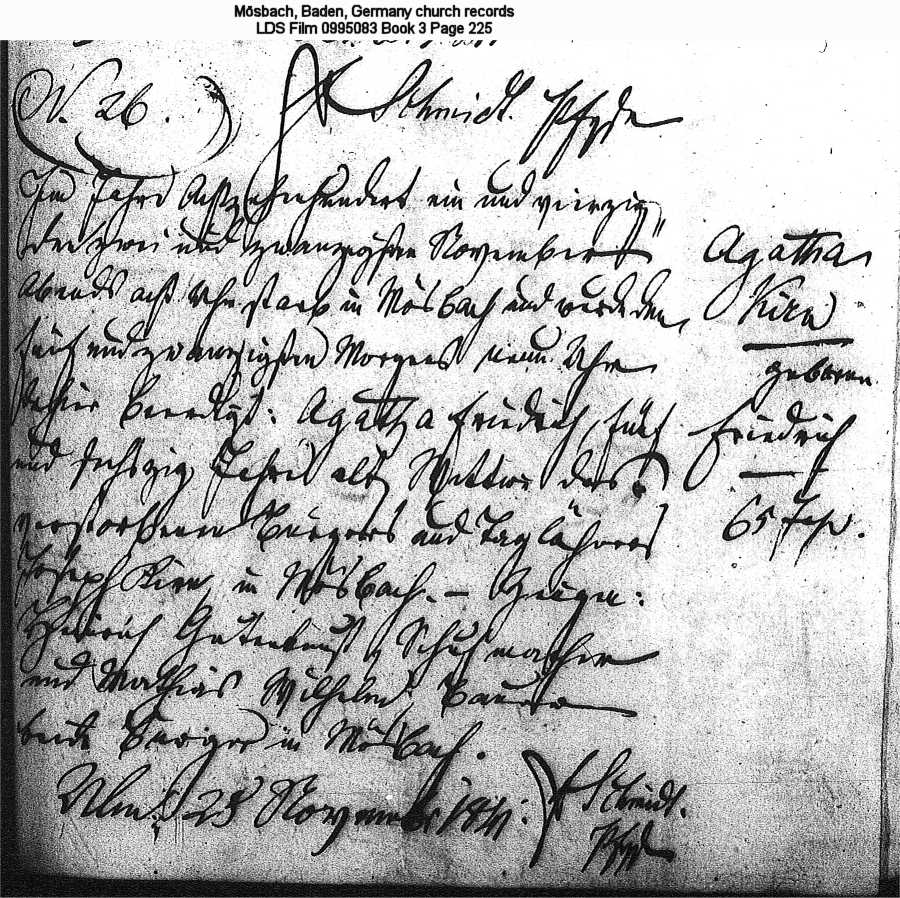 Mösbach, Baden, Germany church records
LDS Film 0995083 Book 3 Page 225
Schmidt. Pfvw
N. 26.
Im Jahre Achtzehnhundert ein und vierzig
den zwei und zwanzigsten Novembers
Abends acht Uhr starb in Mösbach und wurde den
fünf und zwanzigsten Morgens neun Uhr
dahier beerdigt: Agatha Friedrich, fünf
und sechszig Jahre alt, Wittwe des
verstorbenen Bürgers und Taglöhners
Joseph Kirn in Mösbach. – Zeugen:
Heinrich Schuhmacher
und Mathias Wilhelm Bauer
beide Bürger in Mösbach.
Ulm 25 November 1841.
Schmidt.
Agatha
Kirn
geboren
Friedrich
65 Jahr.